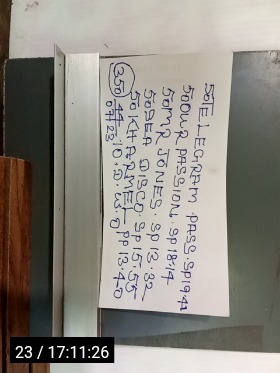 50 TELEGRAM PASS. SP19.41
50 OUR PASSION. SP18.14
50 MR JONES. SP13.32
50 SEA DISCO SP15.55
50 KHARMEL PP13.40
350
23 / 17:11:26